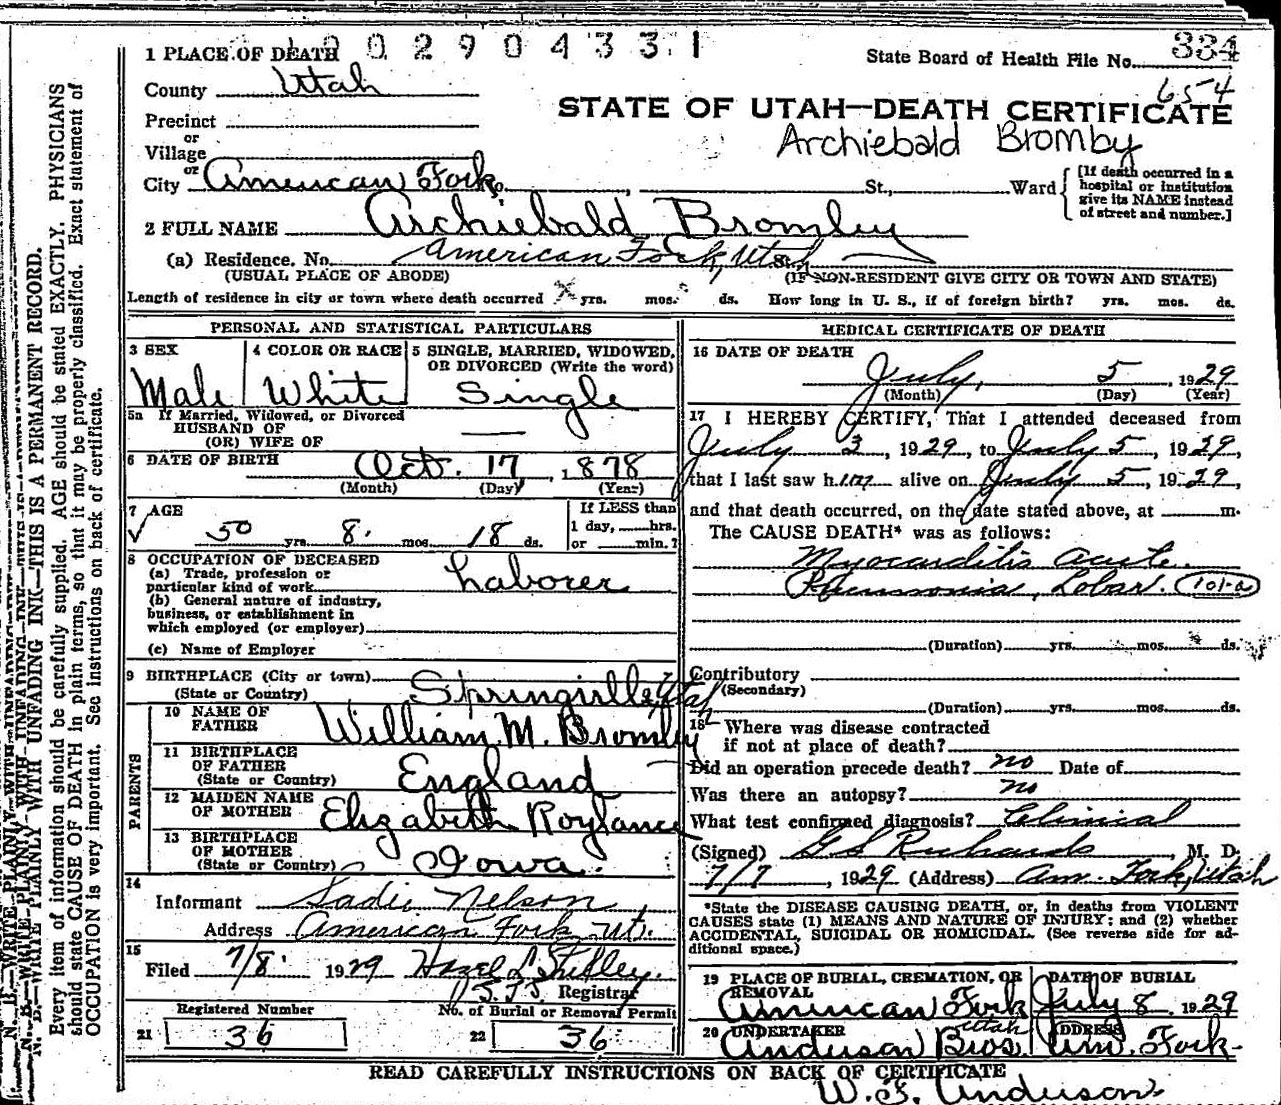 1 PLACE OF DEATH 0 0 2 9 0 4 3 3 1
State Board of Health File No. 334
654
County Utah
STATE OF UTAH—DEATH CERTIFICATE
Precinct
Archiebald Bromby
or
Village
or
City American Fork, St., Ward
[If death occurred in a hospital or institution give its NAME instead of street and number.]
2 FULL NAME Archiebald Bromley
(a) Residence. No. American Fork, Utah St.,
(USUAL PLACE OF ABODE) (IF NON-RESIDENT GIVE CITY OR TOWN AND STATE)
Length of residence in city or town where death occurred yrs. mos. ds. How long in U. S., if of foreign birth? yrs. mos. ds.
PERSONAL AND STATISTICAL PARTICULARS
3 SEX Male
4 COLOR OR RACE White
5 SINGLE, MARRIED, WIDOWED, OR DIVORCED (Write the word) Single
5a If Married, Widowed, or Divorced
HUSBAND OF
(OR) WIFE OF —
6 DATE OF BIRTH Oct. 17, 1878
(Month) (Day) (Year)
7 AGE 50 yrs. 8. mos. 18 ds.
If LESS than
1 day, hrs.
or min.?
8 OCCUPATION OF DECEASED
(a) Trade, profession or
particular kind of work Laborer
(b) General nature of industry,
business, or establishment in
which employed (or employer)
(c) Name of Employer
9 BIRTHPLACE (City or town)
(State or Country) Springville, Utah
PARENTS
10 NAME OF
FATHER William M. Bromley
11 BIRTHPLACE
OF FATHER
(State or Country) England
12 MAIDEN NAME
OF MOTHER Elizabeth Roylance
13 BIRTHPLACE
OF MOTHER
(State or Country) Iowa.
14
Informant Sadie Nelson
Address American Fork Ut.
15
Filed 7/8. 1929 Hazel L Shelley.
Registrar
Registered Number
21 36
No. of Burial or Removal Permit
22 36
MEDICAL CERTIFICATE OF DEATH
16 DATE OF DEATH
July, 5, 1929
(Month) (Day) (Year)
17 I HEREBY CERTIFY, That I attended deceased from
July 3, 1929, to July 5, 1929,
that I last saw him alive on July 5, 1929,
and that death occurred, on the date stated above, at m.
The CAUSE DEATH* was as follows:
Myocarditis acute.
Pneumonia, Lobar. 101-a
(Duration) yrs. mos. ds.
Contributory
(Secondary)
(Duration) yrs. mos. ds.
18 Where was disease contracted
if not at place of death?
Did an operation precede death? no Date of
Was there an autopsy? no
What test confirmed diagnosis? Clinical
(Signed) G S Richards, M. D.
7/7, 1929 (Address) Am. Fork, Utah
*State the DISEASE CAUSING DEATH, or, in deaths from VIOLENT
CAUSES state (1) MEANS AND NATURE OF INJURY; and (2) whether
ACCIDENTAL, SUICIDAL OR HOMICIDAL. (See reverse side for ad-
ditional space.)
19 PLACE OF BURIAL, CREMATION, OR
REMOVAL
American Fork
Utah
DATE OF BURIAL
July 8 1929
20 UNDERTAKER
Anderson Bros.
ADDRESS
Am. Fork.
READ CAREFULLY INSTRUCTIONS ON BACK OF CERTIFICATE
W. F. Anderson
N. B.—WRITE PLAINLY WITH UNFADING INK—THIS IS A PERMANENT RECORD.
Every item of information should be carefully supplied. AGE should be stated EXACTLY. PHYSICIANS
should state CAUSE OF DEATH in plain terms, so that it may be properly classified. Exact statement of
OCCUPATION is very important. See instructions on back of certificate.